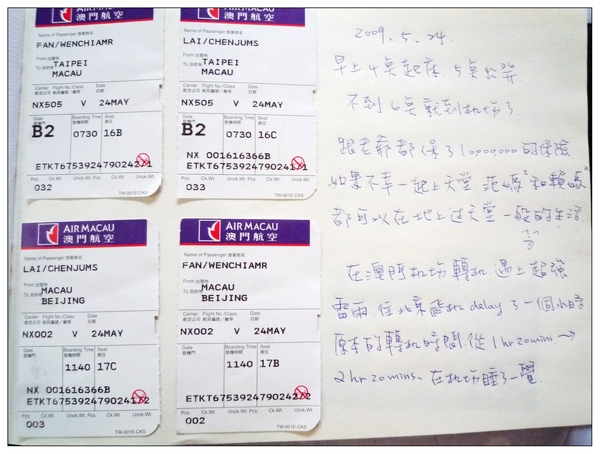 AIR MACAU
澳門航空
Name of Passenger 旅客姓名
FAN/WENCHIAMR
From 出發地
TAIPEI
To 目的地
MACAU
Carrier Flight No./Class Date
NX505 V 24MAY
Gate Boarding Time Seat
B2 0730 16B
ETKT6753924790242/1
Pcs. Ck.Wt. Unck.Wt.
032
TW-001E-CKS
AIR MACAU
澳門航空
Name of Passenger 旅客姓名
LAI/CHENJUMS
From 出發地
TAIPEI
To 目的地
MACAU
Carrier Flight No./Class Date
NX505 V 24MAY
Gate Boarding Time Seat
B2 0730 16C
NX 001616366B
ETKT6753924790241/1
Pcs. Ck.Wt. Unck.Wt.
033
TW-001E-CKS
AIR MACAU
澳門航空
Name of Passenger 旅客姓名
LAI/CHENJUMS
From 出發地
MACAU
To 目的地
BEIJING
Carrier Flight No./Class Date
NX002 V 24MAY
Gate Boarding Time Seat
1140 17C
NX 001616366B
ETKT6753924790241/2
Pcs. Ck.Wt. Unck.Wt.
003
TW-001E-CKS
AIR MACAU
澳門航空
Name of Passenger 旅客姓名
FAN/WENCHIAMR
From 出發地
MACAU
To 目的地
BEIJING
Carrier Flight No./Class Date
NX002 V 24MAY
Gate Boarding Time Seat
1140 17B
ETKT6753924790242/2
Pcs. Ck.Wt. Unck.Wt.
002
TW-001E-CKS
2009.5.24
早上4點起床 5點出發
不到6點就到机场了
跟老爺都保了10000000的保險
如果不幸一起上天堂 范媽和賴媽
都可以在地上过天堂一般的生活
在澳門机场轉机 遇上超強
雷雨 往北京飛机delay了一個小時
原本的轉机時間從1hr20mins →
2hr20mins、在机场睡了一覺